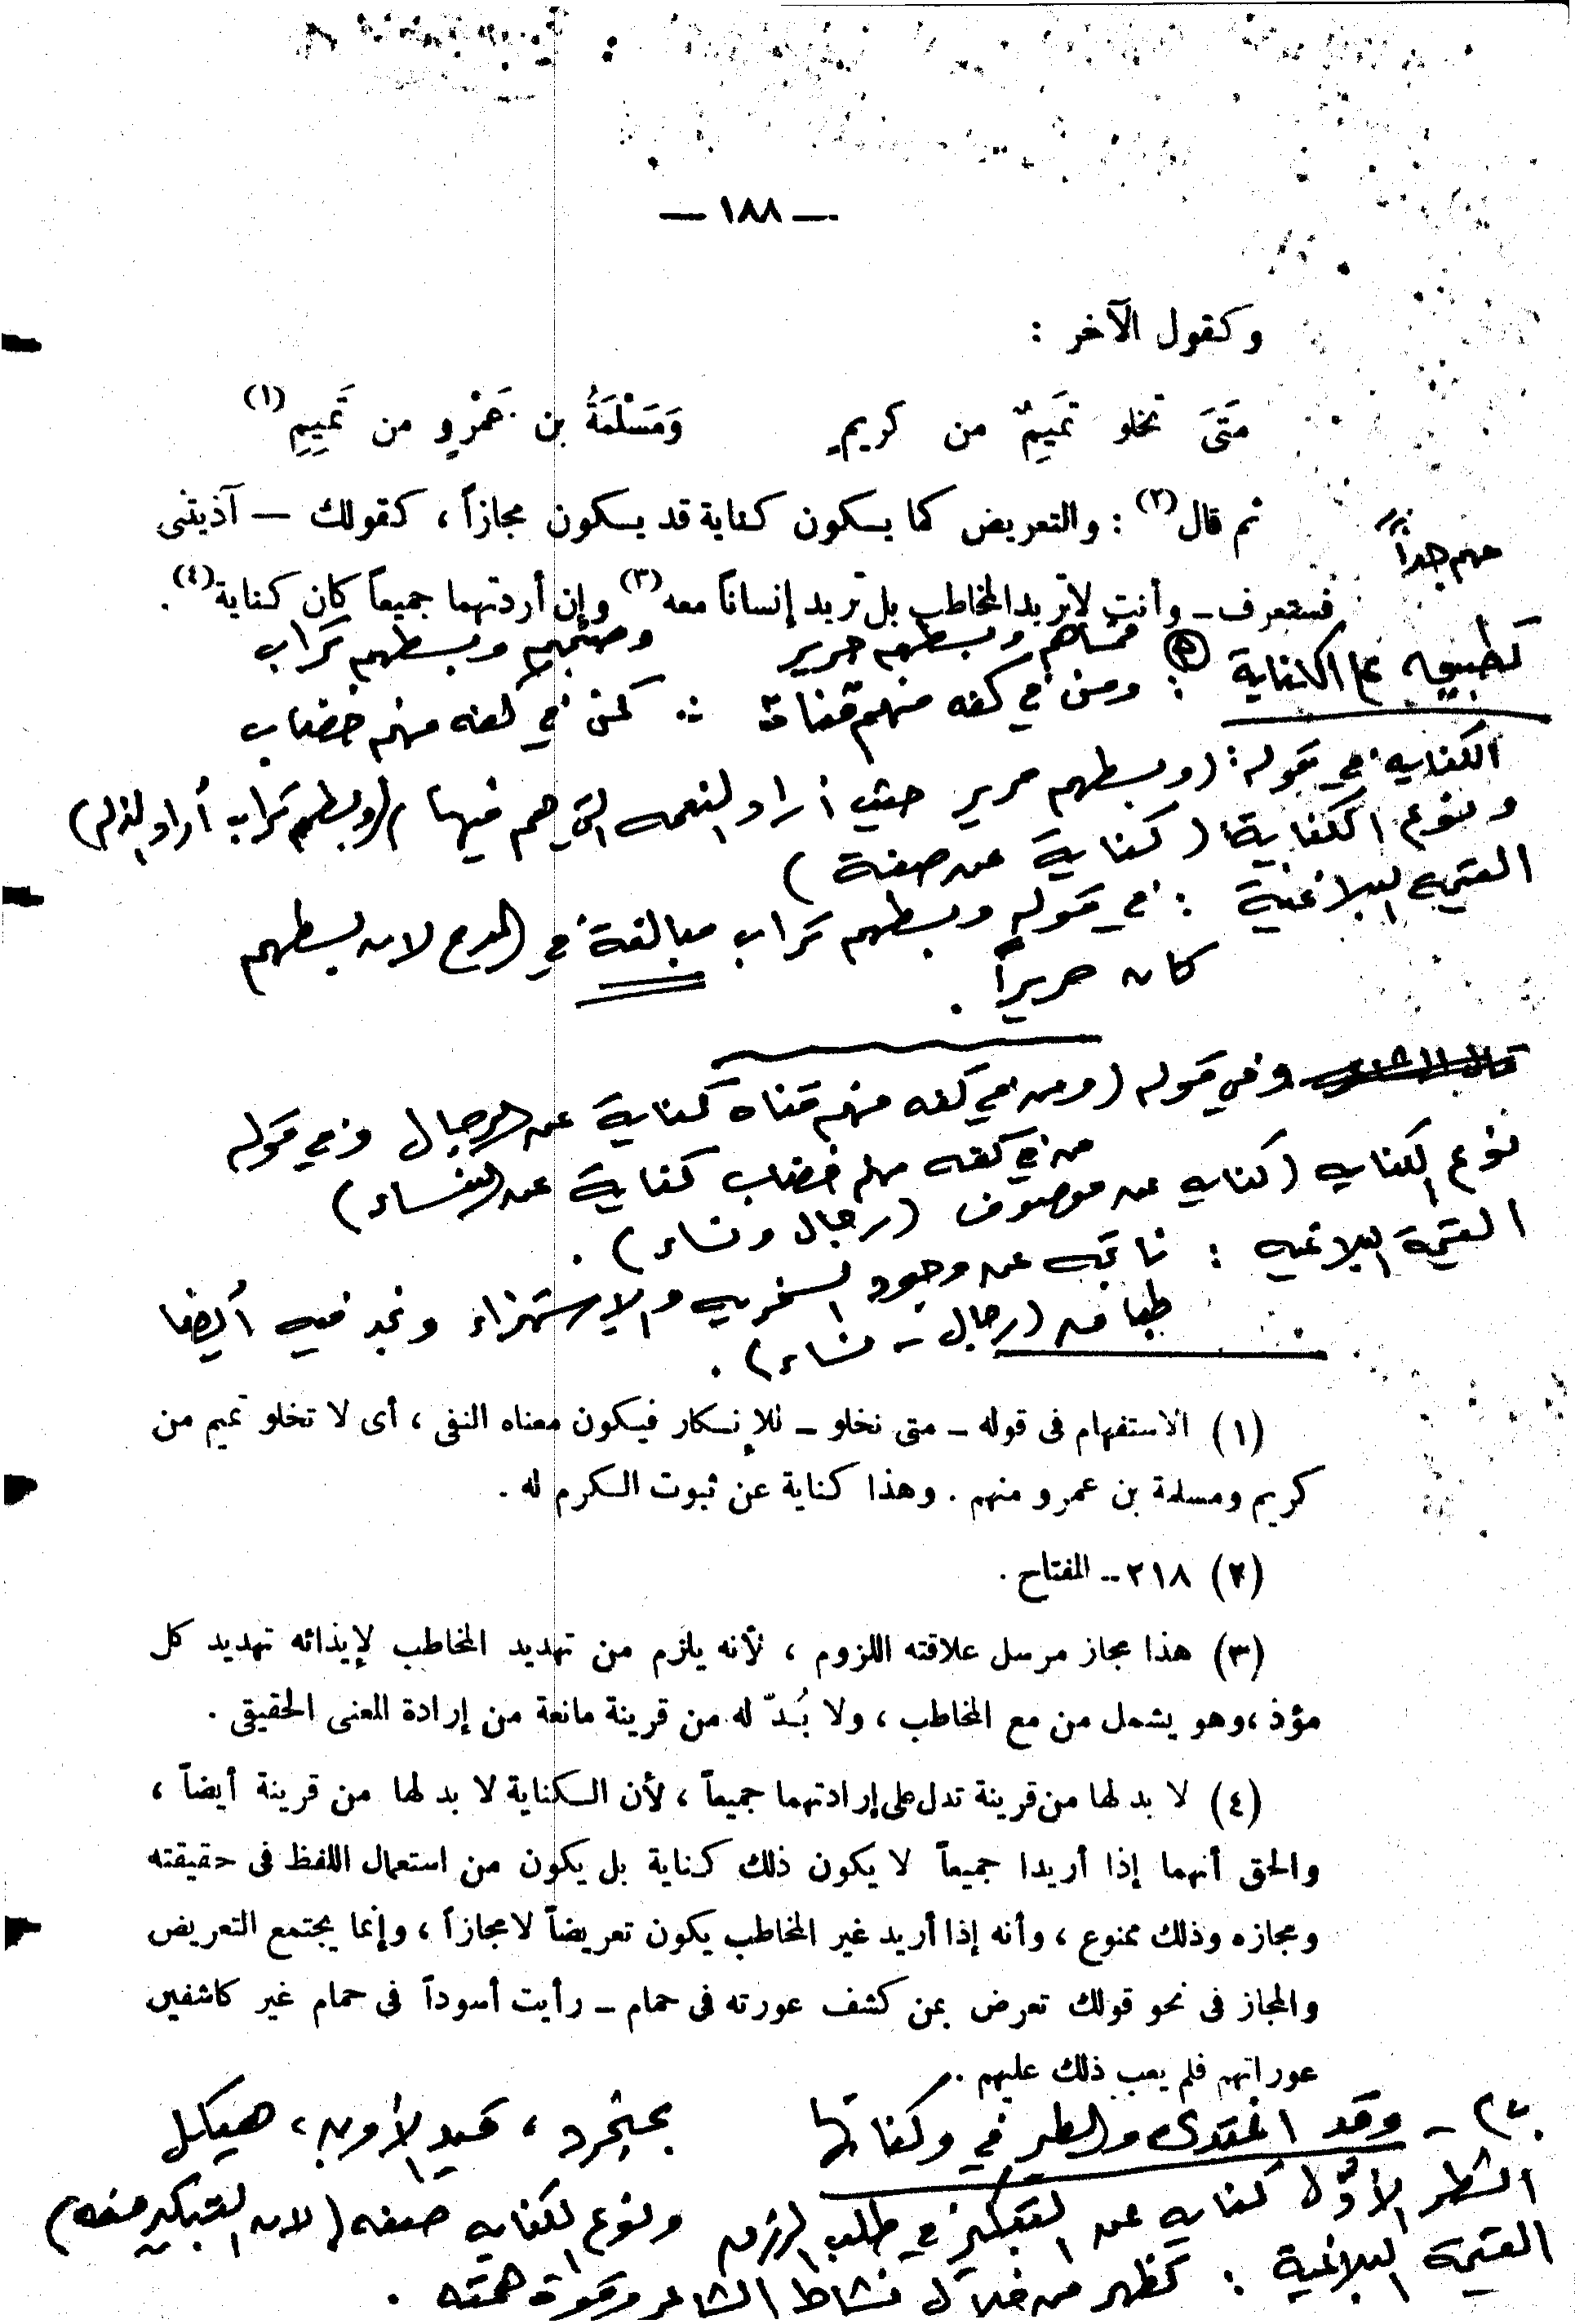 — ١٨٨ —
وكقول الآخر :
مَتَىَ تخلو تَميمٌ من كريمٍ وَمَسْلَمَةُ بن عَمْرٍو من تَميمِ (١)
ثم قال (٢) : والتعريض كما يكون كناية قد يكون مجازاً ، كقولك — آذيتنى
مهم جداً
فستعرف ـ وأنت لا تريد المخاطب بل تريد إنساناً معه (٣) وإن أردتهما جميعاً كان كناية (٤) .
فمساهم وبسطهم حرير وصبحهم وبسطهم تراب
تطبيق على الكناية : ومن في كفه منهم قناة ∴ كمن في كفه منهم خضاب
الكناية في قوله : (وبسطهم حرير حيث أراد النعمه التي هم فيها) (وبسطهم تراب أراد الذله)
ونوع الكناية (كناية عن صفة)
القيمه البلاغية : في قوله وبسطهم تراب مبالغة في المدح لان بسطهم
كان حريراً .
قال الشاعر وفي قوله (ومن في كفه منهم قناه كناية عن الرجال وفي قوله
من في كفه منهم خضاب كناية عن النساء)
نوع الكنايه (كنايه عن موصوف (رجال ونساء) .
القيمة البلاغيه : ناتجه عن وجود السخريه والاستهزاء ونجد فيه أيضا
طباق (رجال – نساء) .
(١) الاستفهام فى قوله ـ متى تخلو ـ للإنكار فيكون معناه النفى ، أى لا تخلو تميم من
كريم ومسلمة بن عمرو منهم . وهذا كناية عن ثبوت الكرم له .
(٢) ٢١٨ ـ المفتاح .
(٣) هذا مجاز مرسل علاقته اللزوم ، لأنه يلزم من تهديد المخاطب لإيذائه تهديد كل
مؤذ ، وهو يشمل من مع المخاطب ، ولا بُدّ له من قرينة مانعة من إرادة المعنى الحقيقى .
(٤) لا بد لها من قرينة تدل على إرادتهما جميعاً ، لأن الكناية لا بد لها من قرينة أيضاً ،
والحق أنهما إذا أريدا جميعاً لا يكون ذلك كناية بل يكون من استعمال اللفظ فى حقيقته
ومجازه وذلك ممنوع ، وأنه إذا أريد غير المخاطب يكون تعريضاً لا مجازاً ، وإنما يجتمع التعريض
والمجاز فى نحو قولك تعرض بمن كشف عورته فى حمام ـ رأيت أسوداً فى حمام غير كاشفين
عوراتهم فلم يعب ذلك عليهم .
وقد اغتدى والطير في وكناتها بمنجرد ، قيد الأوابد ، هيكل
الشطر الأول كنايه عن التبكير في طلب الرزق ونوع الكنايه صفه (لان التبكير صفه)
القيمة البلاغية : تظهر من خلال نشاط الشاعر وقوة همته .